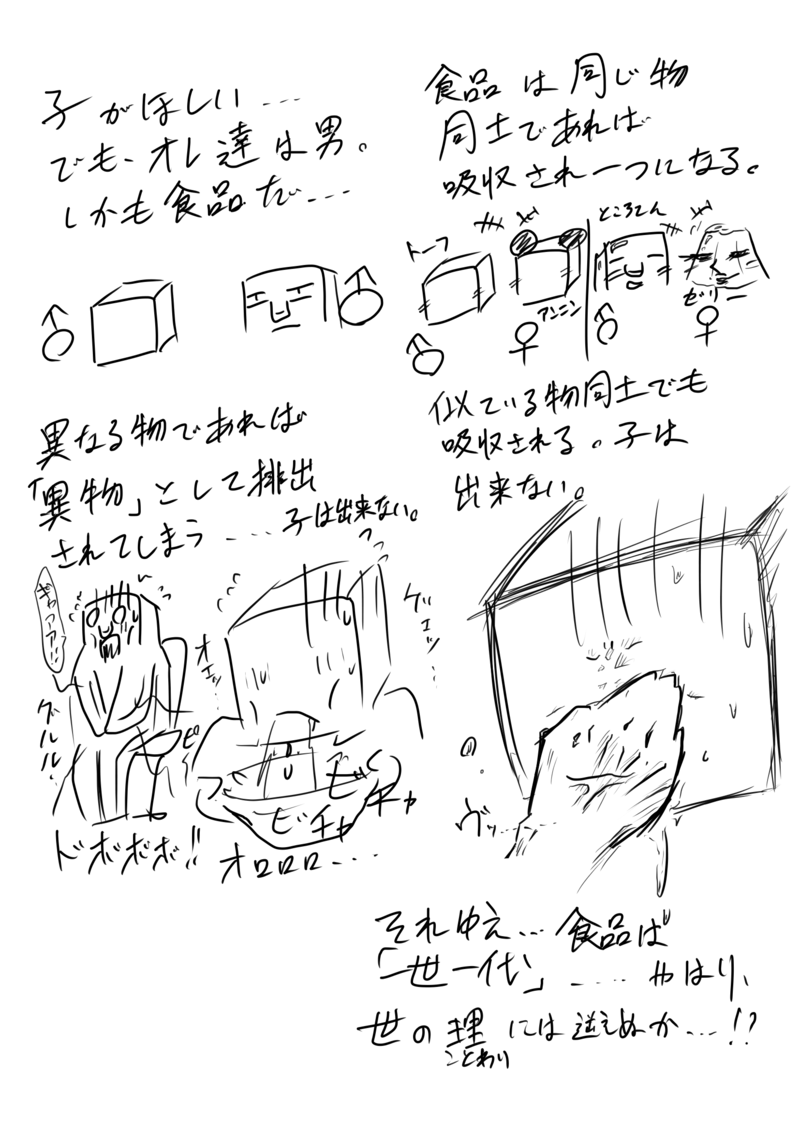 子がほしい…
でも、オレ達は男。
しかも食品だ…
食品は同じ物
同士であれば
吸収され一つになる。
トーフ
アンニン
ところてん
ゼリー
♂
♂
♂
♀
♂
♀
異なる物であれば
「異物」として排出
されてしまう……子は出来ない。
似ている物同士でも
吸収される。子は
出来ない。
グルルル!
ピー
ドボボボ!!
オエェッ…
ゲェェッ…
ビチャ
ビチャ
オロロロ…
ヴッ……
それゆえ…食品は
「一世一代」……やはり、
世の理には逆えぬか…!?
ことわり